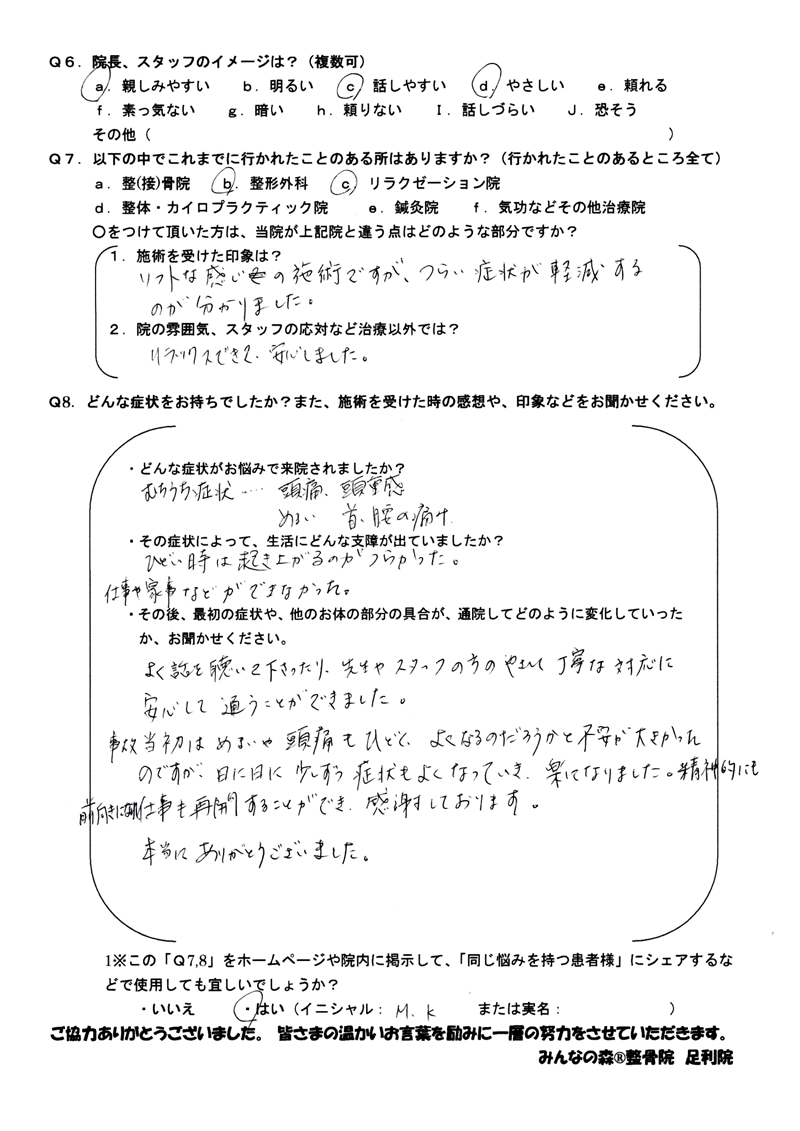 Q6．院長、スタッフのイメージは？（複数可）
a．親しみやすい　b．明るい　c．話しやすい　d．やさしい　e．頼れる
f．素っ気ない　g．暗い　h．頼りない　I．話しづらい　J．恐そう
その他（　　　　　　　　　　）
Q7．以下の中でこれまでに行かれたことのある所はありますか？（行かれたことのあるところ全て）
a．整(接)骨院　b．整形外科　c．リラクゼーション院
d．整体・カイロプラクティック院　e．鍼灸院　f．気功などその他治療院
〇をつけて頂いた方は、当院が上記院と違う点はどのような部分ですか？
1．施術を受けた印象は？
ソフトな感じの施術ですが、つらい症状が軽減する
のが分かりました。
2．院の雰囲気、スタッフの応対など治療以外では？
リラックスできて、安心しました。
Q8．どんな症状をお持ちでしたか？また、施術を受けた時の感想や、印象などをお聞かせください。
・どんな症状がお悩みで来院されましたか？
むちうち症状…… 頭痛、頭重感
めまい　首、腰の痛み
・その症状によって、生活にどんな支障が出ていましたか？
ひどい時は起き上がるのがつらかった。
仕事や家事などができなかった。
・その後、最初の症状や、他のお体の部分の具合が、通院してどのように変化していった
か、お聞かせください。
よく話を聴いて下さったり、先生やスタッフの方のやさしく丁寧な対応に
安心して通うことができました。
事故当初はめまいや頭痛もひどく、よくなるのだろうかと不安が大きかった
のですが、日に日に少しずつ症状もよくなっていき、楽になりました。精神的にも
前向きになり仕事も再開することができ、感謝しております。
本当にありがとうございました。
1※この「Q7,8」をホームページや院内に掲示して、「同じ悩みを持つ患者様」にシェアするな
どで使用しても宜しいでしょうか？
・いいえ　・はい（イニシャル：M.K　または実名：　　　　　）
ご協力ありがとうございました。 皆さまの温かいお言葉を励みに一層の努力をさせていただきます。
みんなの森®整骨院　足利院